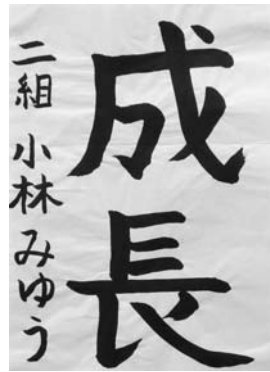 成長
二組 小林みゆう